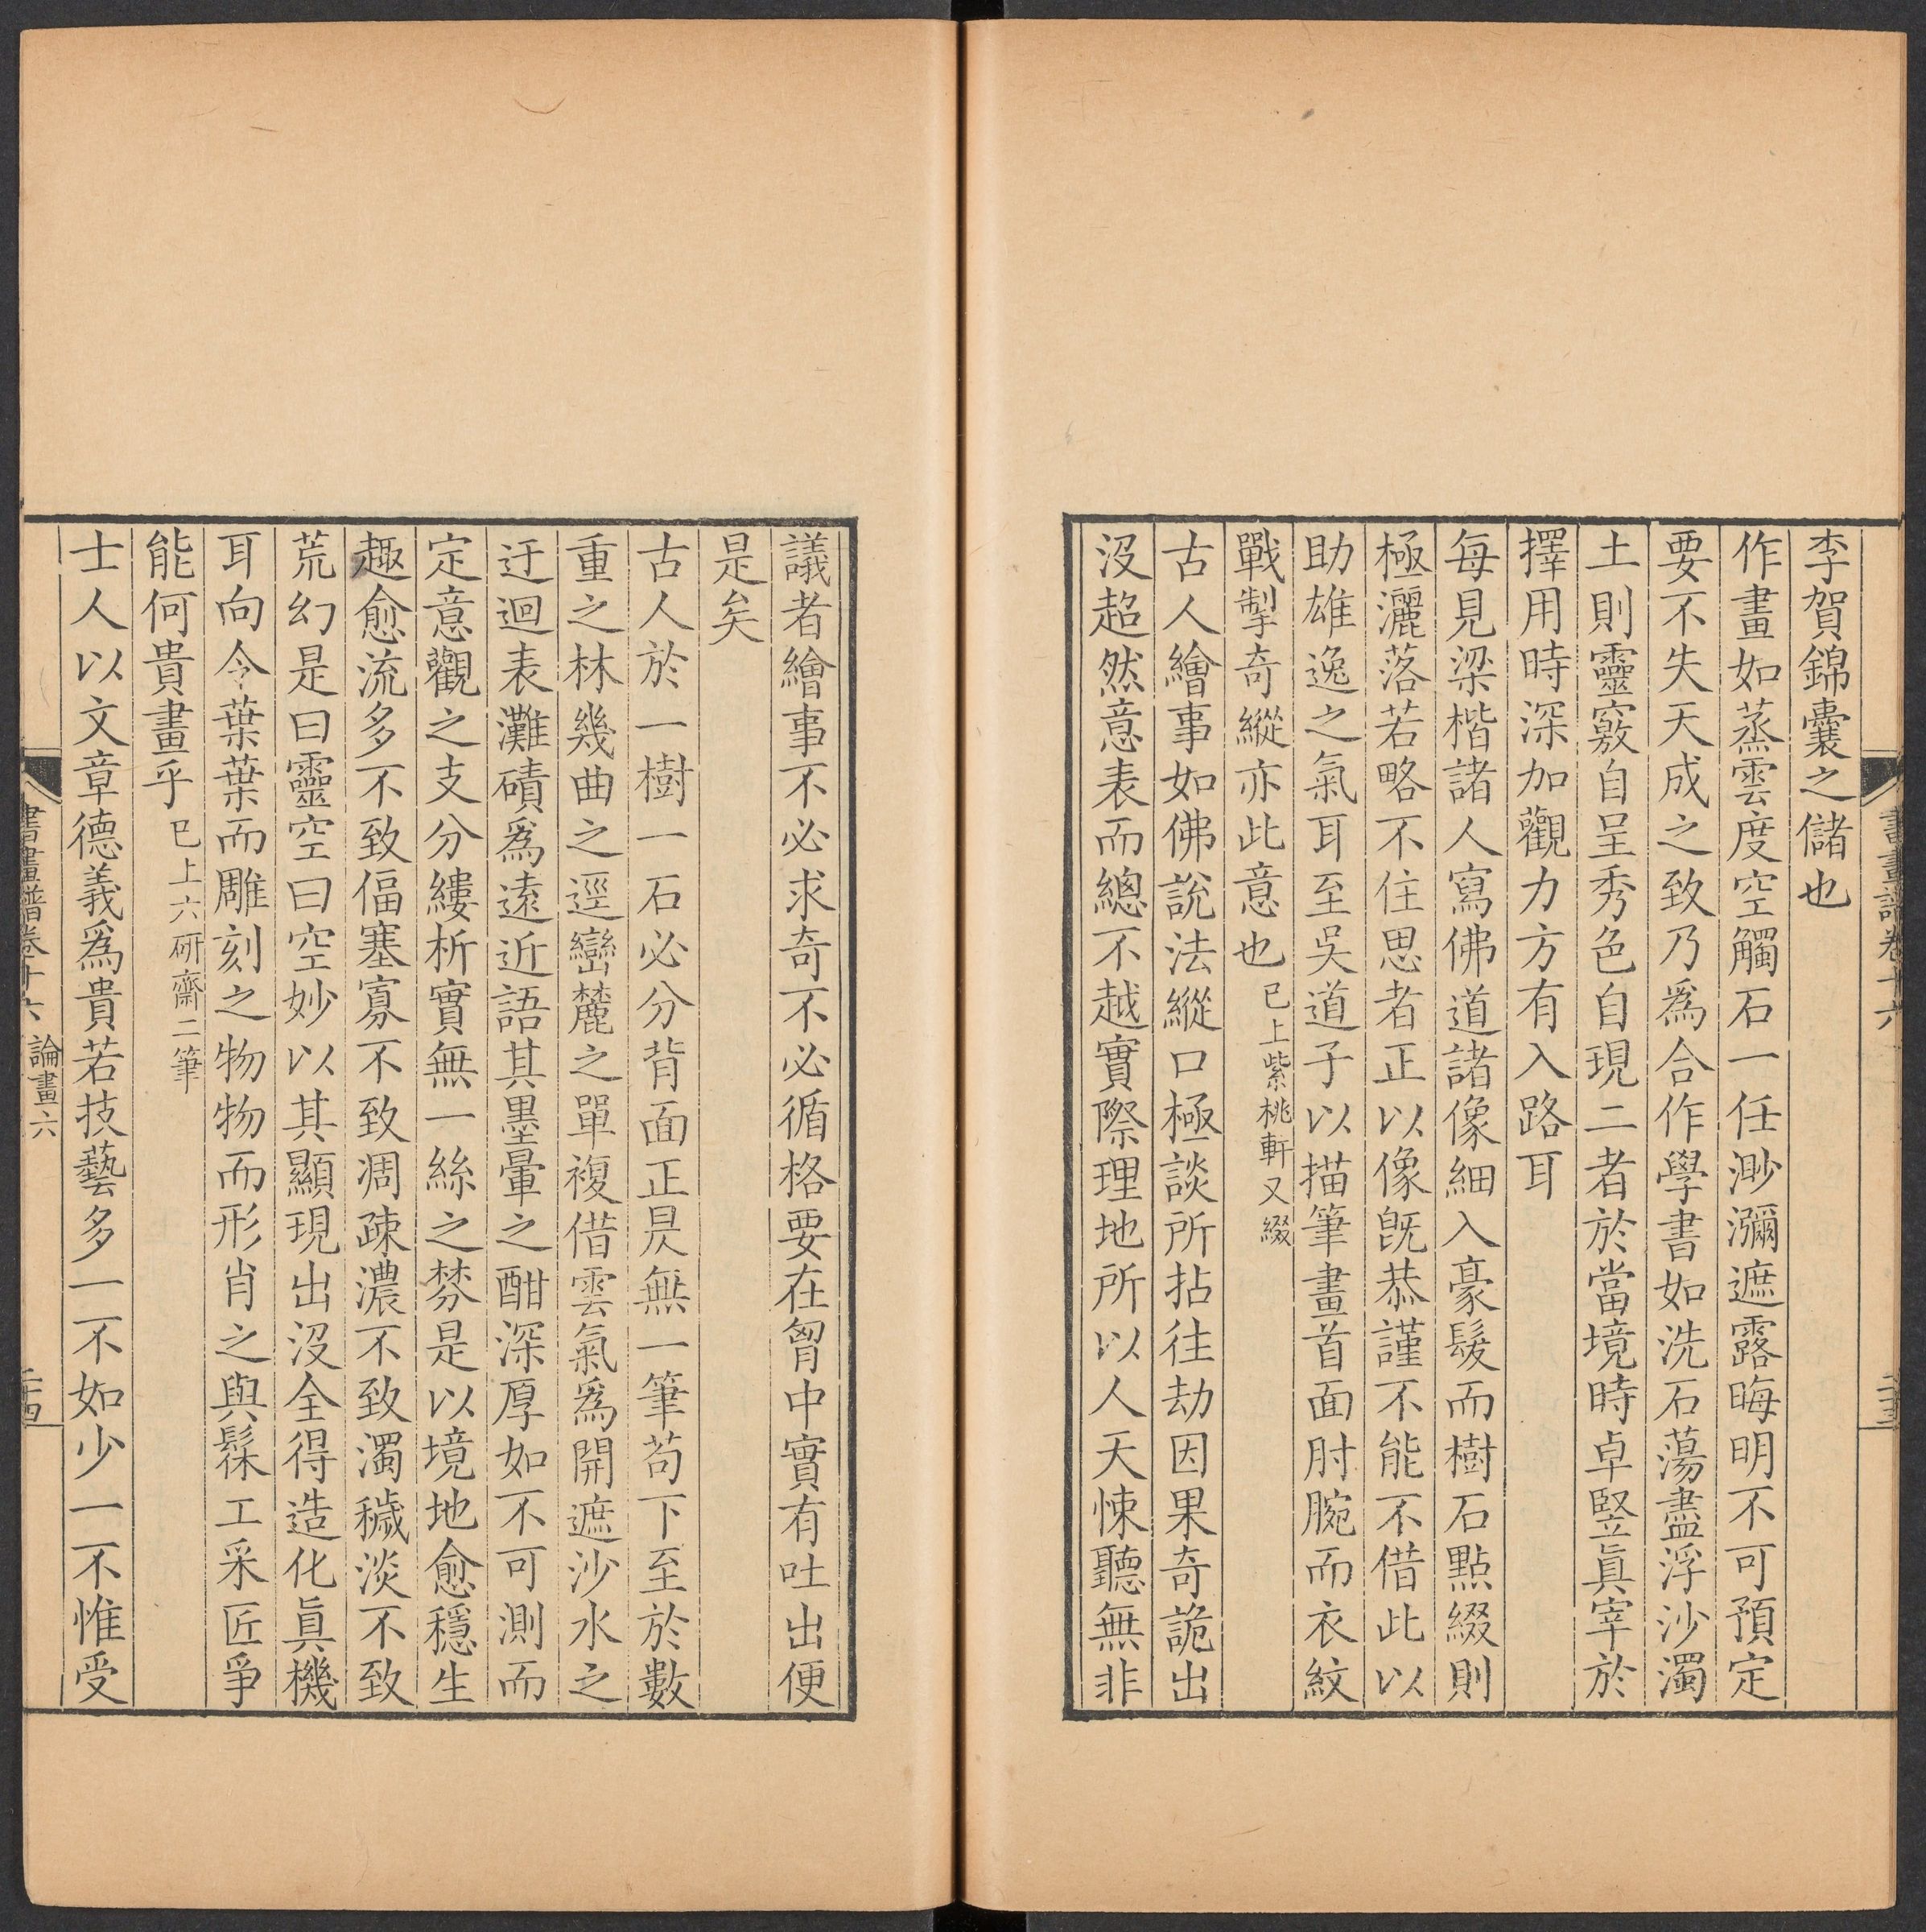 書畫譜卷十六
李賀錦囊之儲也
作畫如蒸雲度空觸石一任渺瀰遮露晦明不可預定
要不失天成之致乃爲合作學書如洗石蕩盡浮沙濁
土則靈竅自呈秀色自現二者於當境時卓竪眞宰於
擇用時深加觀力方有入路耳
每見梁楷諸人寫佛道諸像細入豪髮而樹石點綴則
極灑落若略不住思者正以像旣恭謹不能不借此以
助雄逸之氣耳至吳道子以描筆畫首面肘腕而衣紋
戰掣奇縱亦此意也 已上紫桃軒又綴
古人繪事如佛說法縱口極談所拈往劫因果奇詭出
沒超然意表而總不越實際理地所以人天悚聽無非
議者繪事不必求奇不必循格要在胷中實有吐出便
是矣
古人於一樹一石必分背面正昃無一筆苟下至於數
重之林幾曲之逕巒麓之單複借雲氣爲開遮沙水之
迂迴表灘磧爲遠近語其墨暈之酣深厚如不可測而
定意觀之支分縷析實無一絲之棼是以境地愈穩生
趣愈流多不致偪塞寡不致凋疎濃不致濁穢淡不致
荒幻是曰靈空曰空妙以其顯現出沒全得造化眞機
耳向令葉葉而雕刻之物物而形肖之與髹工采匠爭
能何貴畫乎 已上六研齋二筆
士人以文章德義爲貴若技藝多一不如少一不惟受
書畫譜卷十六 論畫六 二十四